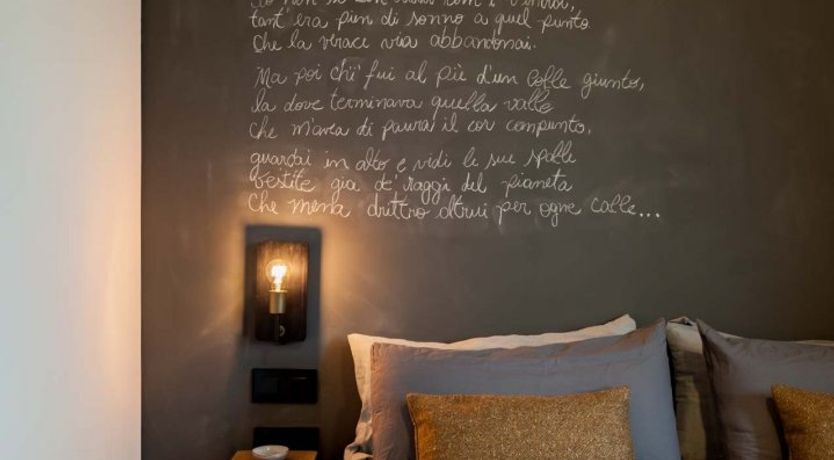 Io non so ben ridir com'i' v'intrai,
tant'era pien di sonno a quel punto
Che la verace via abbandonai.
Ma poi ch'i' fui al piè d'un colle giunto,
la dove terminava quella valle
che m'avea di paura il cor compunto,
guardai in alto e vidi le sue spalle
Vestite gia de' raggi del pianeta
Che mena drittro altrui per ogne calle...